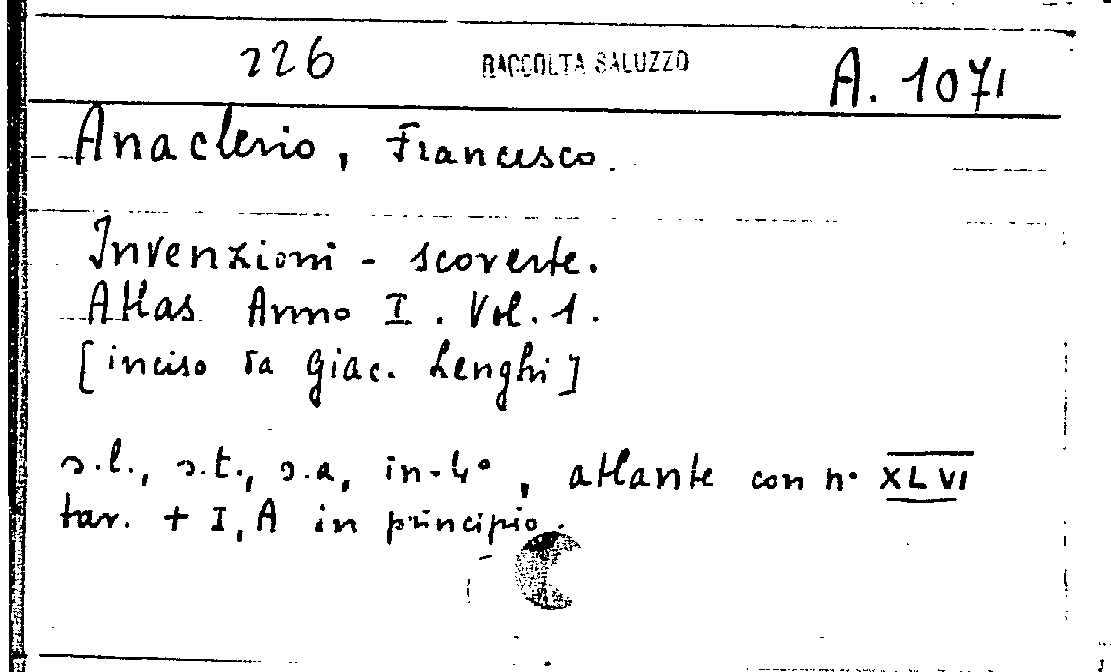 226 RACCOLTA SALUZZO A. 1071
Anaclerio, Francesco.
Invenzioni - scoverte.
Atlas Anno I. Vol. 1.
[inciso da Giac. Lenghi]
s.l., s.t., s.a, in-4°, atlante con n° XLVI
tav. + I, A in principio.